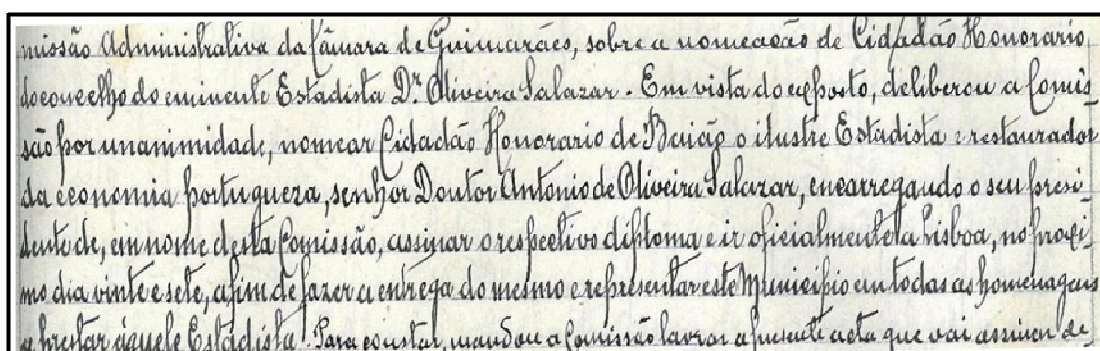 missão Administrativa da Câmara de Guimarães, sobre a nomeação de Cidadão Honorario,
do concelho do eminente Estadista Dr. Oliveira Salazar. Em vista do exposto, deliberou a Comis-
são por unanimidade, nomear Cidadão Honorario de Baião o ilustre Estadista e restaurador
da economia portugueza, senhor Doutor Antonio de Oliveira Salazar, encarregando o seu presi-
dente de, em nome desta Comissão, assignar o respectivo diploma e ir oficialmente a Lisboa, no proxi-
mo dia vinte e sete, afim de fazer a entrega do mesmo e representar este Municipio em todas as homenagens
a prestar áquele Estadista. Para constar, mandou a Comissão lavrar a presente acta que vai assinar de-